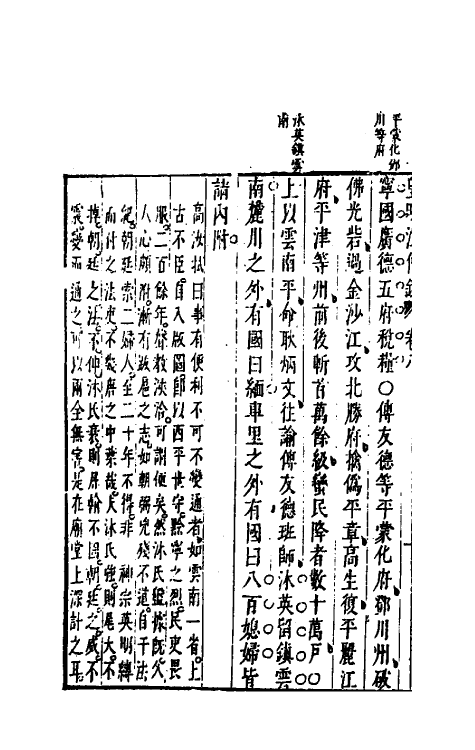 平蒙化鄧
川等府
沐英鎮雲
南
皇明法傳錄 卷八
寧國廣德五府稅糧○傅友德等平蒙化府鄧川州破
佛光砦過金沙江攻北勝府擒偽平章高生復平麗江
府平津等州前後斬首萬餘級蠻民降者數十萬戶○
上以雲南平命耿炳文往諭傅友德班師沐英留鎮雲
南麓川之外有國曰緬車里之外有國曰八百媳婦皆
請內附
高汝栻曰事有便利不可不變通者如雲南一省上
古不臣自入版圖即以西平世守黔寧之烈民吏畏
服二百餘年聲教浹洽可謂便矣然沐氏鎮撫既久
人心願附漸有跋扈之志如朝弼兇殘不道自干法
紀朝廷索二婦人至二十年不得非 神宗英明縛
而付之法吏不幾唐之中葉哉大沐氏強則尾大不
掉朝廷之法不伸沐氏衰則屏翰不固朝廷之威不
震變而通之可以兩全無害是在廟堂上深計之耳